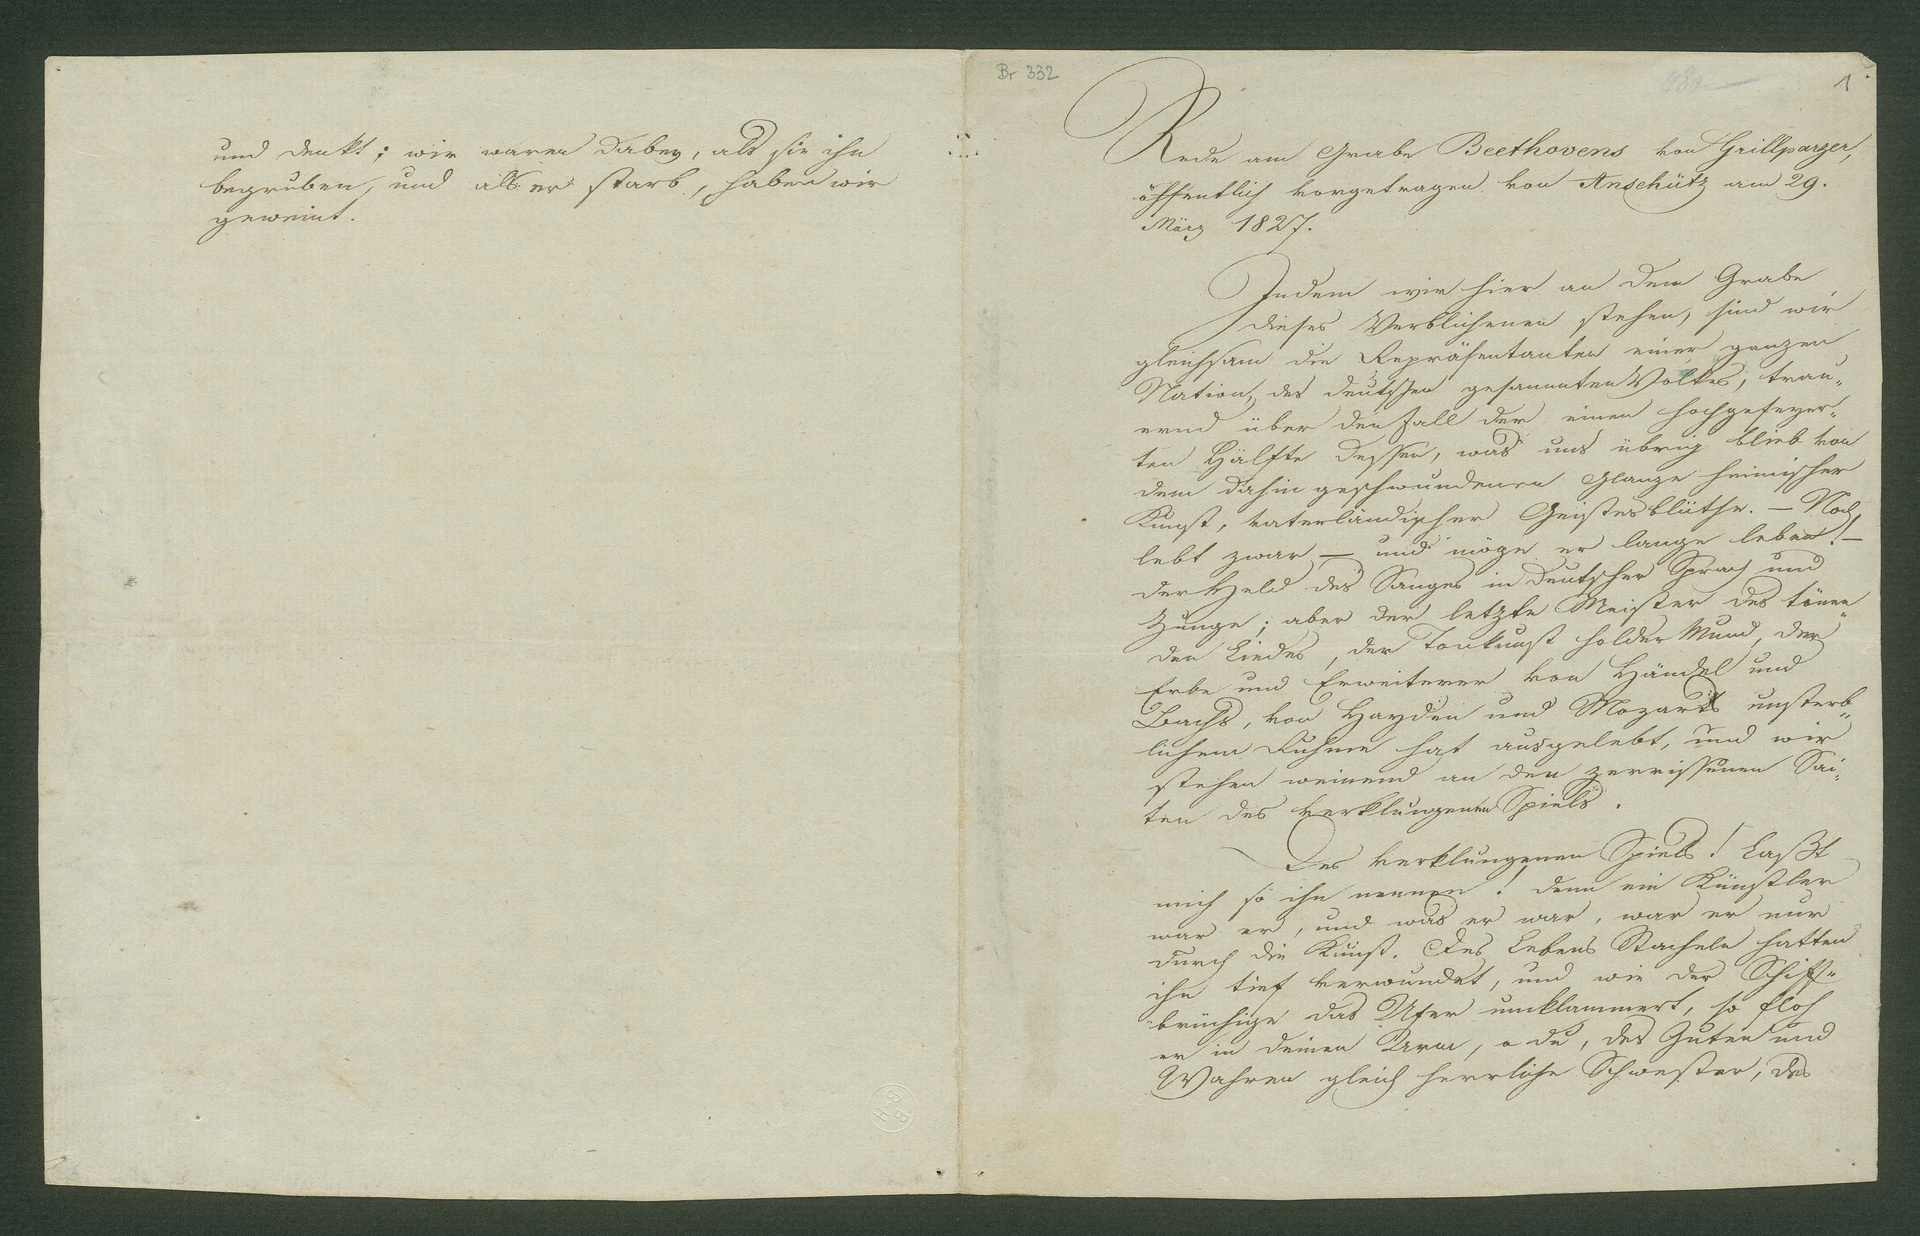 und denkt; wir waren dabey, als sie ihn
begruben, und als er starb, haben wir
geweint.
Br 332
1
Rede am Grabe Beethovens von Grillparzer,
öffentlich vorgetragen von Anschütz am 29.
März 1827.
Indem wir hier an dem Grabe
dieses Verblichenen stehen, sind wir
gleichsam die Repräsentanten einer ganzen
Nation, des deutschen gesammten Volkes, trau„
ernd über den Fall der einen hochgefeyer„
ten Hälfte dessen, was uns übrig blieb von
dem dahin geschwundenen Glanze heimischer
Kunst, vaterländischer Geistesblüthe. — Noch
lebt zwar — und möge er lange leben! —
der Held des Sanges in deutscher Sprach und
Zunge; aber der letzte Meister des tönen„
den Liedes, der Tonkunst holder Mund, der
Erbe und Erweiterer von Händel und
Bachs, von Hayden und Mozarts unsterb„
lichem Ruhme hat ausgelebt, und wir
stehen weinend an den zerrissenen Sai„
ten des verklungenen Spiels.
Des verklungenen Spiels! Laßt
mich so ihn nennen! denn ein Künstler
war er, und was er war, war er nur
durch die Kunst. Des Lebens Stacheln hatten
ihn tief verwundet, und wie der Schiff„
brüchige das Ufer umklammert, so floh
er in deinen Arm, o du, des Guten und
Wahren gleich herrliche Schwester, des